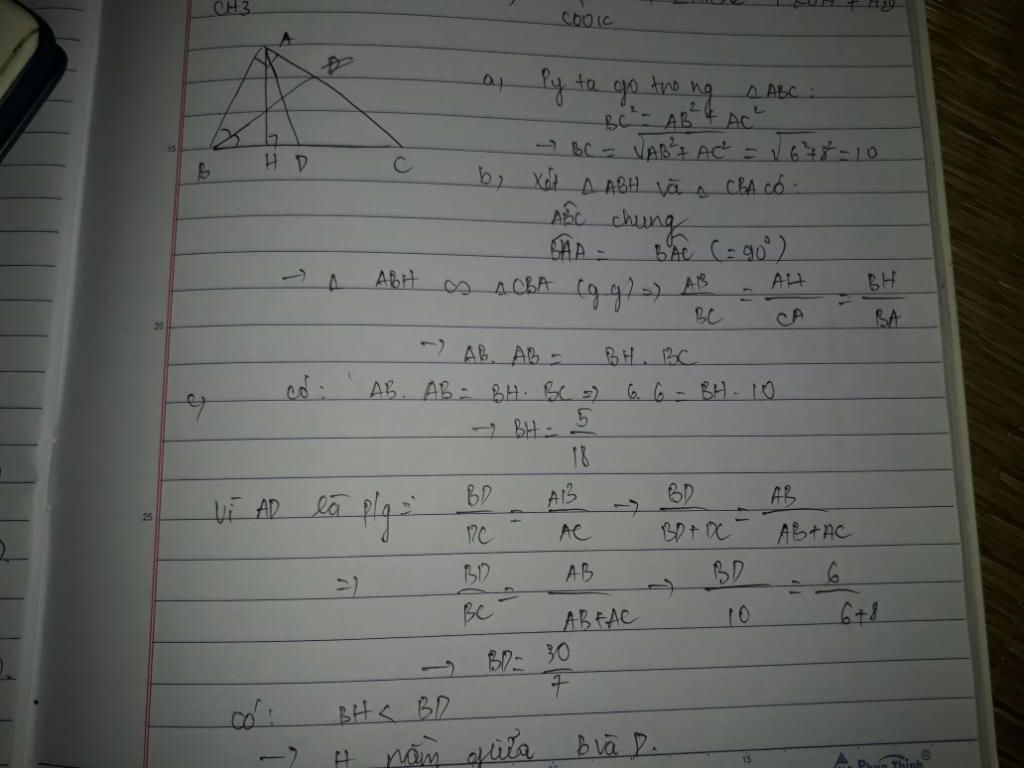 CH3
COOIC
A
B H D C
a, Py ta go trong △ ABC:
BC² = AB² + AC²
→ BC = √AB²+AC² = √6²+8² = 10
b, Xét △ ABH và △ CBA có:
ABC chung
BHA = BAC (= 90°)
→ △ ABH ∽ △CBA (g.g) => AB/BC = AH/CA = BH/BA
→ AB. AB = BH. BC
c, có: AB. AB = BH. BC => 6. 6 = BH. 10
→ BH = 5/18
Vì AD là p/g => BD/DC = AB/AC → BD/BD+DC = AB/AB+AC
=> BD/BC = AB/AB+AC → BD/10 = 6/6+8
→ BD = 30/7
Có: BH < BD
→ H nằm giữa B và D.
15
20
25
15